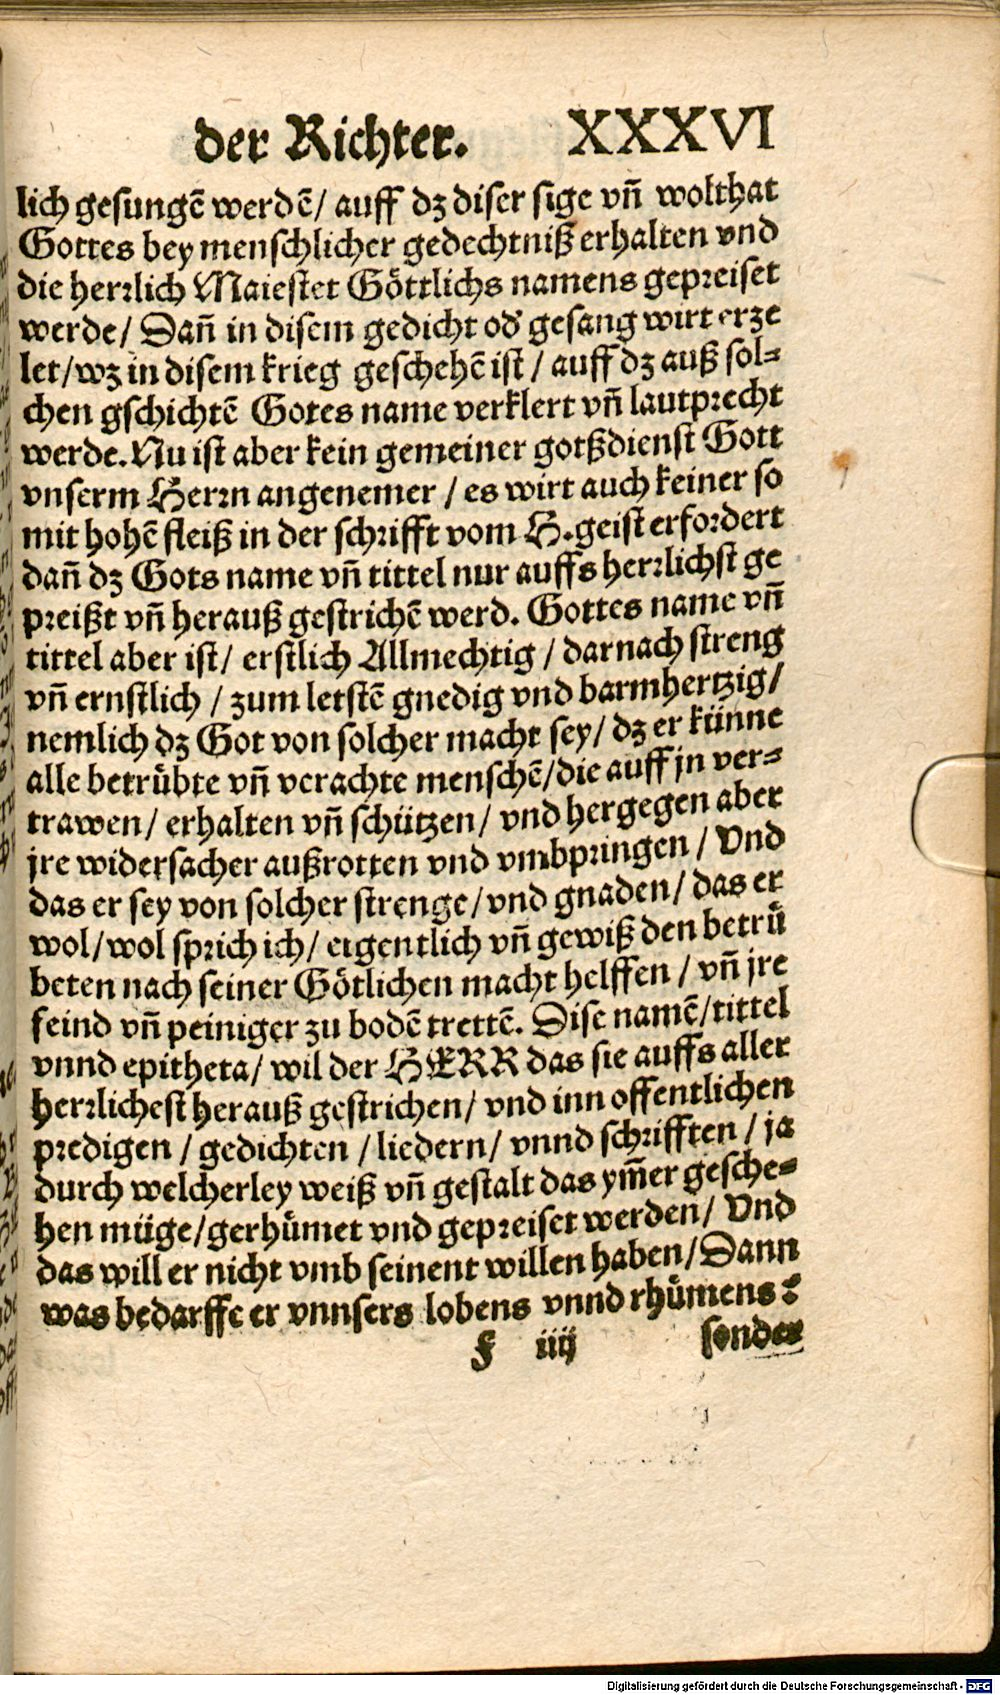 der Richter. XXXVI
lich gesungē werdē/ auff dz diser sige vñ wolthat
Gottes bey menschlicher gedechtniß erhalten vnd
die herrlich Maiestet Göttlichs namens gepreiset
werde/ Dañ in disem gedicht od̕ gesang wirt erze
let/wz in disem krieg geschehē ist/ auff dz auß sol⸗
chen gschichtē Gotes name verklert vñ lautprecht
werde. Nu ist aber kein gemeiner gotßdienst Gott
vnserm Herrn angenemer / es wirt auch keiner so
mit hohē fleiß in der schrifft vom H. geist erfordert
dañ dz Gots name vñ tittel nur auffs herrlichst ge
preißt vñ herauß gestrichē werd. Gottes name vñ
tittel aber ist/ erstlich Allmechtig / darnach streng
vñ ernstlich / zum letstē gnedig vnd barmhertzig/
nemlich dz Got von solcher macht sey/ dz er künne
alle betrůbte vñ verachte menschē/die auff jn ver⸗
trawen/ erhalten vñ schützen/ vnd hergegen aber
jre widersacher außrotten vnd vmbpringen / Vnd
das er sey von solcher strenge/vnd gnaden/ das er
wol/wol sprich ich/ eigentlich vñ gewiß den betrů
beten nach seiner Götlichen macht helffen / vñ jre
feind vñ peiniger zu bodē trettē. Dise namē/tittel
vnnd epitheta/ wil der HERR das sie auffs aller
herrlichest herauß gestrichen/ vnd inn offentlichen
predigen / gedichten / liedern/ vnnd schrifften / ja
durch welcherley weiß vñ gestalt das ym̄er gesche⸗
hen müge/gerhůmet vnd gepreiset werden/ Vnd
das will er nicht vmb seinent willen haben/Dann
was bedarffe er vnnsers lobens vnnd rhůmens?
f iiij sonder
Digitalisierung gefördert durch die Deutsche Forschungsgemeinschaft - DFG